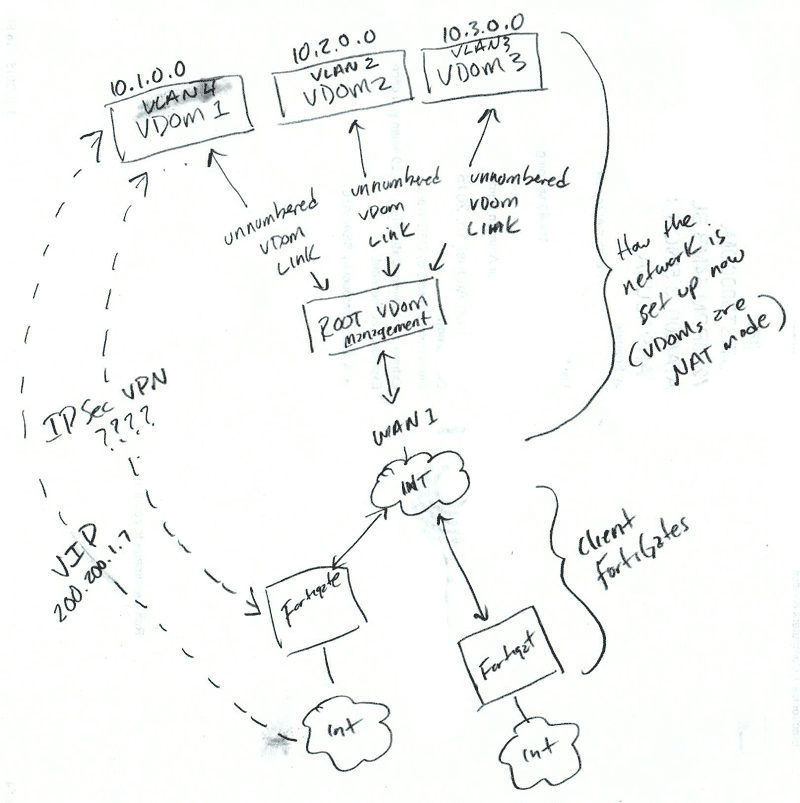 10.1.0.0
VLAN 4
VDOM 1
10.2.0.0
VLAN 2
VDOM 2
10.3.0.0
VLAN 3
VDOM 3
unnumbered
VDOM
Link
unnumbered
VDOM
Link
unnumbered
VDOM
Link
ROOT VDOM
management
WAN 1
INT
How the
network is
set up now
(VDOMs are
NAT mode)
IPSec VPN
????
VIP
200.200.1.7
Fortigate
Int
Fortigat
Int
Client
Fortigates